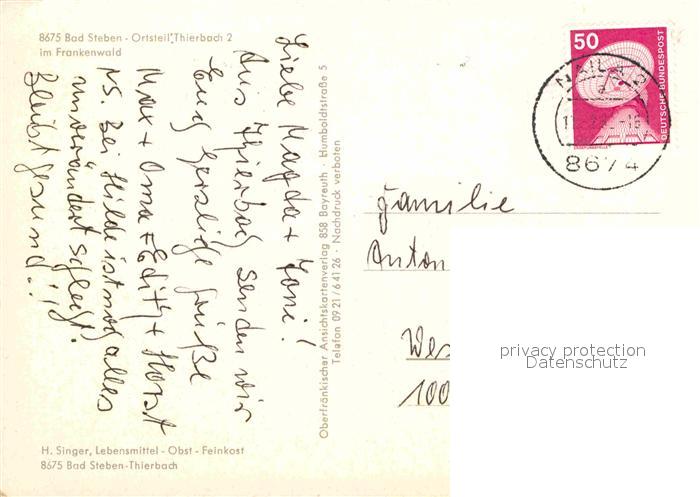 8675 Bad Steben - Ortsteil Thierbach 2
im Frankenwald
Liebe Magda + Toni!
Aus Thierbach senden wir
Euch herzliche Grüße
Max + Oma + Edith + Horst
NS. Bei Hilde ist noch alles
unverändert schlecht.
Bleibt gesund!!
H. Singer, Lebensmittel - Obst - Feinkost
8675 Bad Steben-Thierbach
Oberfränkischer Ansichtskartenverlag 858 Bayreuth · Humboldtstraße 5
Telefon 0921/64126 · Nachdruck verboten
50
DEUTSCHE BUNDESPOST
NAILA
8674
Familie
Anton
Wes
100
privacy protection
Datenschutz